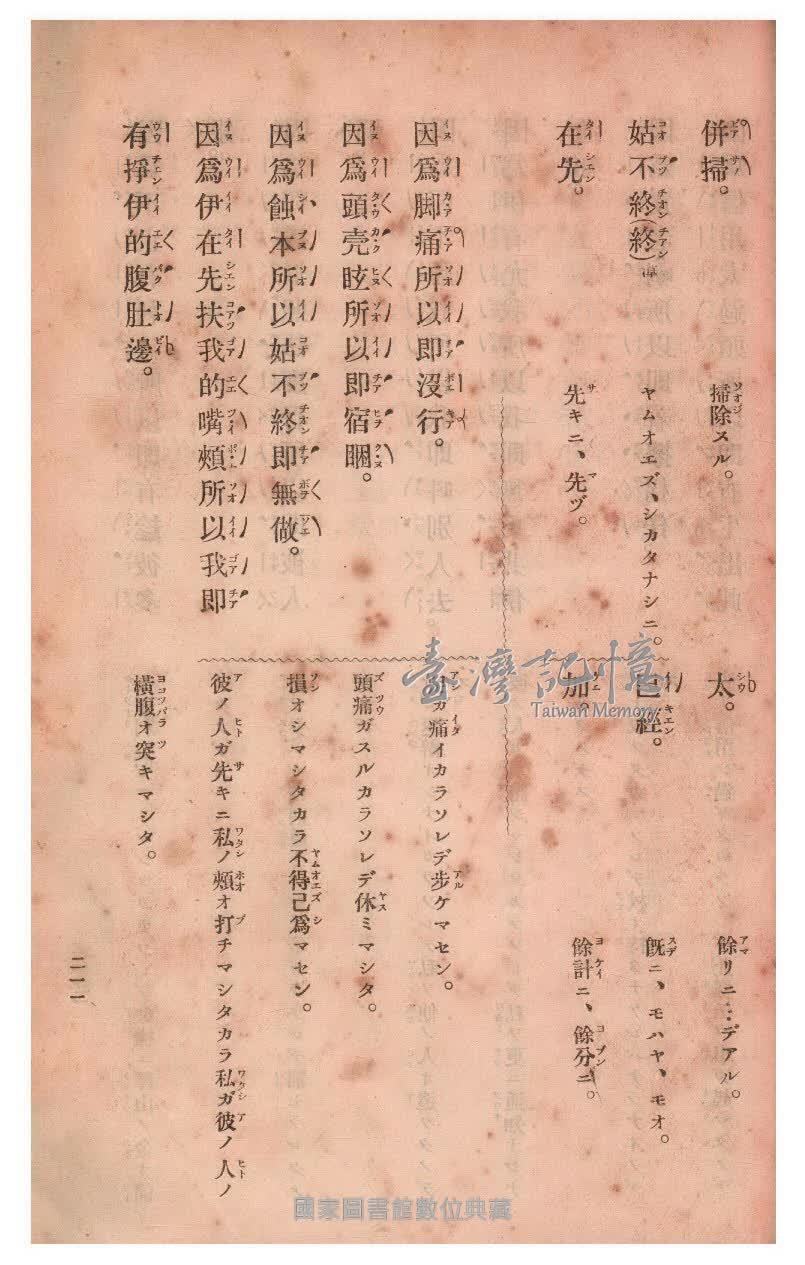 併掃。 掃除スル。 太。 餘リニ…デアル。
姑不終(終) ヤムオエズ、シカタナシニ。 已經。 旣ニ、モハヤ、モオ。
在先。 先キニ、先ヅ。 加。 餘計ニ、餘分ニ。
因爲脚痛所以即沒行。 ガ痛イカラソレデ步ケマセン。
因爲頭壳眩所以即宿睏。 頭痛ガスルカラソレデ休ミマシタ。
因爲蝕本所以姑不終即無做。 損オシマシタカラ不得已爲マセン。
因爲伊在先扶我的嘴頰所以我即 彼ノ人ガ先キニ私ノ頰オ打チマシタカラ私ガ彼ノ人ノ
有掙伊的腹肚邊。 橫腹オ突キマシタ。
二一一
臺灣記憶
Taiwan Memory
國家圖書館數位典藏